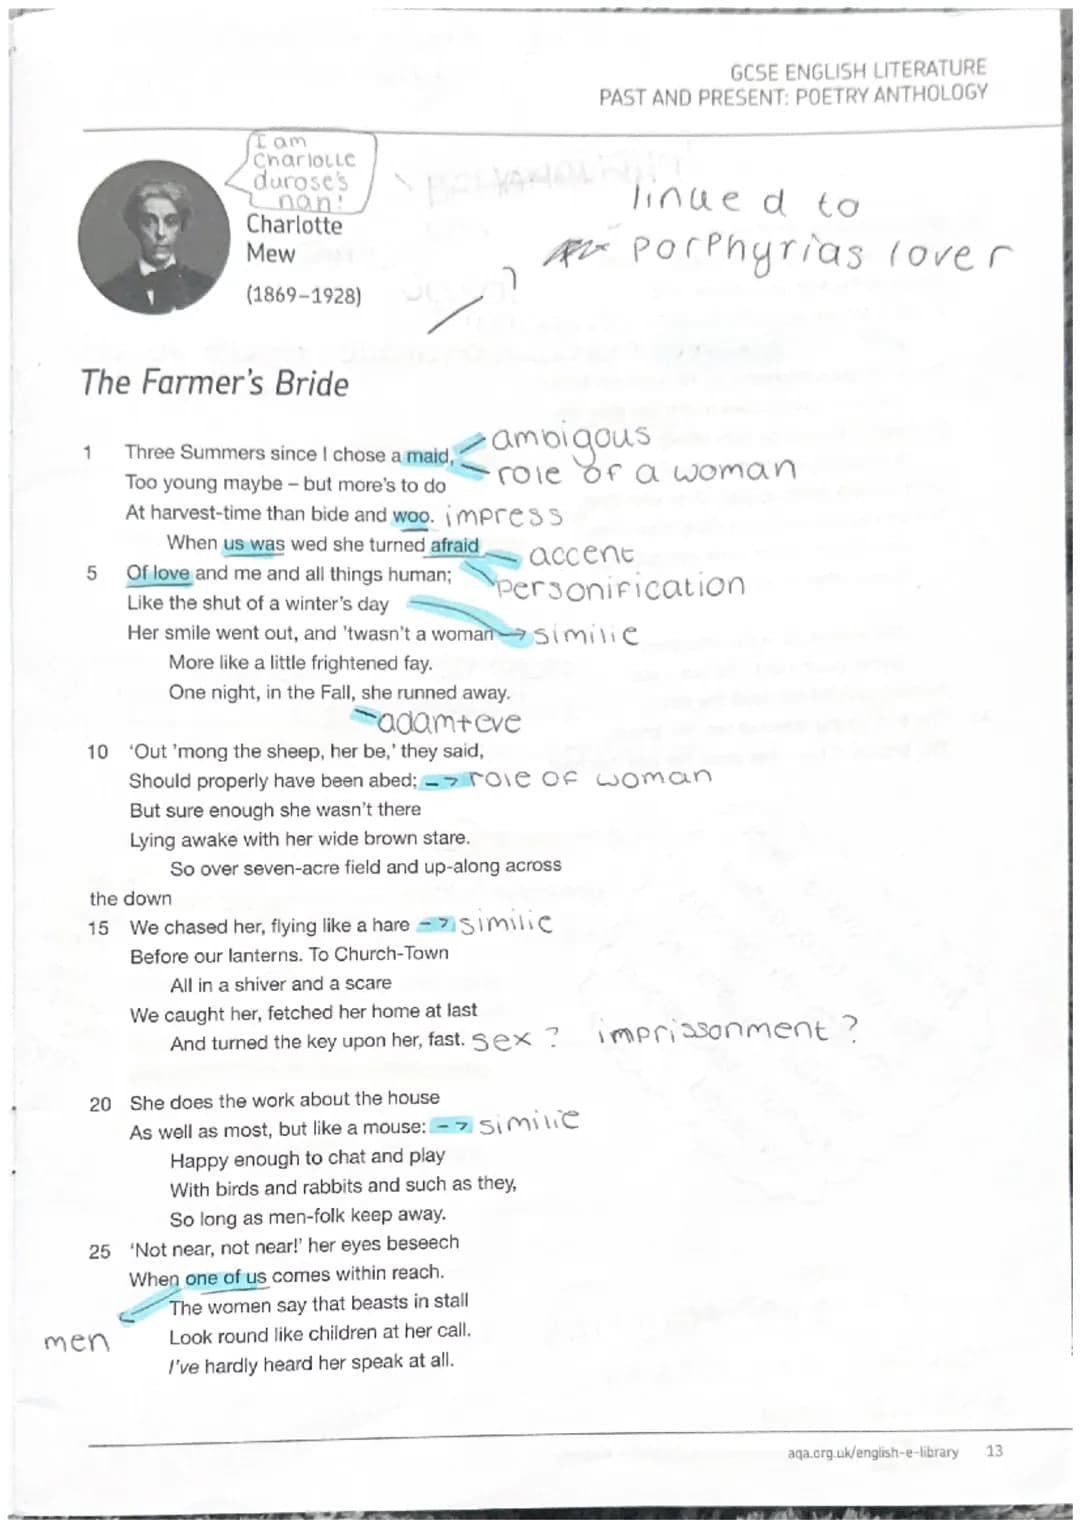 GCSE ENGLISH LITERATURE
PAST AND PRESENT: POETRY ANTHOLOGY
I am
Charlotte
durose's
nan!
Charlotte
Mew
(1869–1928)
linked to
porphyrias lover
The Farmer's Bride
1 Three Summers since I chose a maid, ambigous
Too young maybe – but more's to do role of a woman
At harvest-time than bide and woo. impress
When us was wed she turned afraid accent
5 Of love and me and all things human; personification
Like the shut of a winter's day
Her smile went out, and 'twasn't a woman → similie
More like a little frightened fay.
One night, in the Fall, she runned away.
adam+eve
10 'Out 'mong the sheep, her be,' they said,
Should properly have been abed; → role of woman
But sure enough she wasn't there
Lying awake with her wide brown stare.
So over seven-acre field and up-along across
the down
15 We chased her, flying like a hare → similie
Before our lanterns. To Church-Town
All in a shiver and a scare
We caught her, fetched her home at last
And turned the key upon her, fast. sex ? imprissonment ?
20 She does the work about the house
As well as most, but like a mouse: → similie
Happy enough to chat and play
With birds and rabbits and such as they,
So long as men-folk keep away.
25 'Not near, not near!' her eyes beseech
When one of us comes within reach.
The women say that beasts in stall
men Look round like children at her call.
I've hardly heard her speak at all.
aqa.org.uk/english-e-library 13